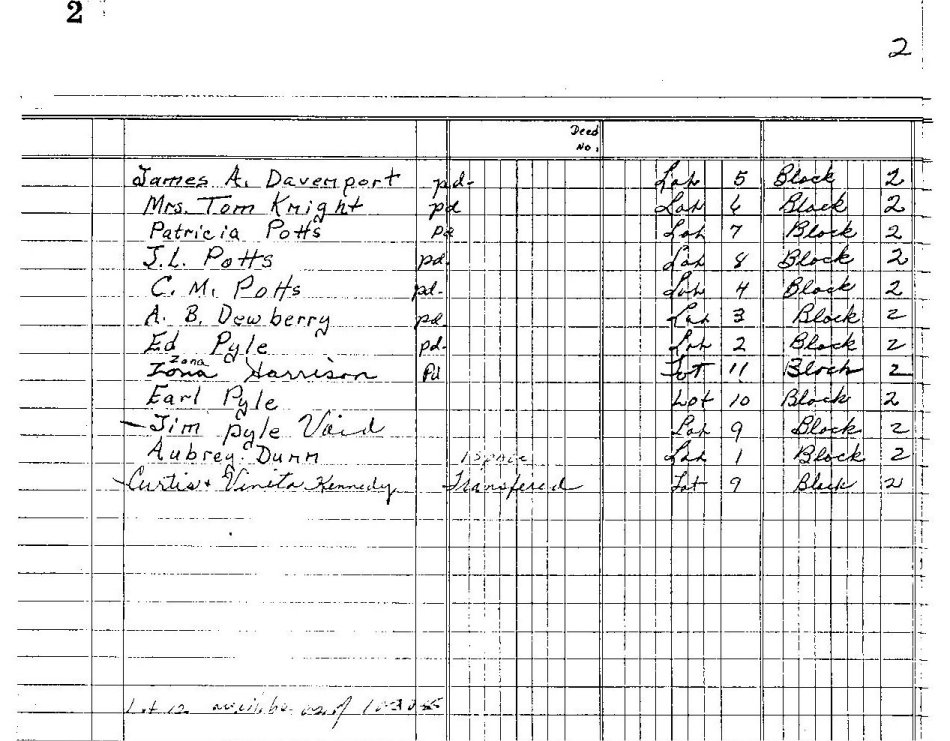 2
2
Deed No.
James A. Davenport pd- Lot 5 Block 2
Mrs. Tom Knight pd Lot 6 Block 2
Patricia Potts pd Lot 7 Block 2
J.L. Potts pd. Lot 8 Block 2
C. M. Potts pd. Lot 4 Block 2
A. B. Dewberry pd. Lot 3 Block 2
Ed Pyle pd. Lot 2 Block 2
Zona
Iona Harrison Pd Lot 11 Block 2
Earl Pyle Lot 10 Block 2
- Jim Pyle Void Lot 9 Block 2
Aubrey Dunn 1 space Lot 1 Block 2
- Curtis + Vinita Kennedy Transfered Lot 9 Block 2
Lot 12 as of